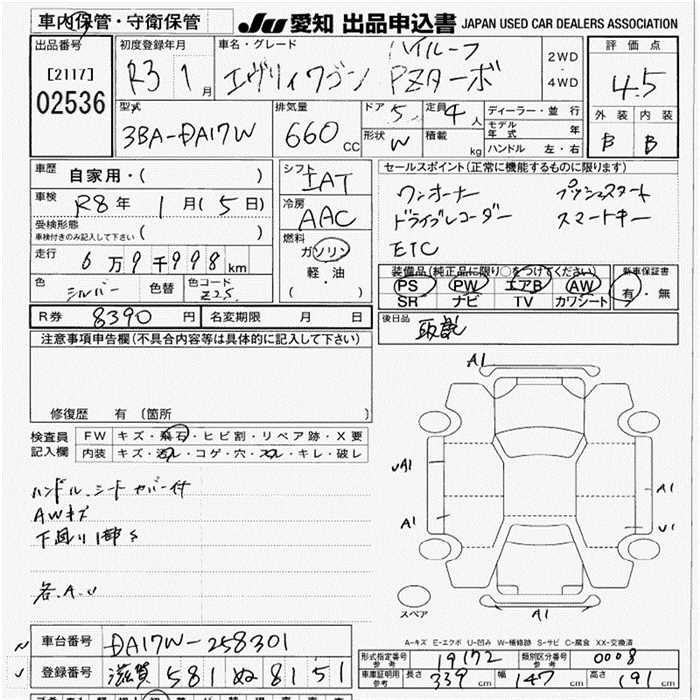 車内保管・守衛保管
JU 愛知 出品申込書 JAPAN USED CAR DEALERS ASSOCIATION
出品番号
[2117]
02536
初度登録年月
R3 1月
車名・グレード
ハイルーフ
エヴリィワゴン PZターボ
2WD
4WD
評価点
4.5
外装 内装
B B
型式
3BA-DA17W
排気量
660cc
ドア 5
定員 4人
形状 W
積載 kg
ディーラー・並行
モデル年式 年
ハンドル 左・右
車歴
自家用・( )
車検
R8年 1月(5日)
受検形態
車検付きのみ記入して下さい ( )
走行
6万9千998km
色
シルバー
色替
色コード
Z2S
シフト
IAT
冷房
AAC
燃料
ガソリン
軽・油
( )
セールスポイント(正常に機能するものに限ります)
ワンオーナー プッシュスタート
ドライブレコーダー スマートキー
ETC
装備品(純正品に限り○をつけてください)
PS PW エアB AW
SR ナビ TV カワシート
新車保証書
有・無
R券 8390円
名変期限 月 日
後日品
取説
注意事項申告欄(不具合内容等は具体的に記入して下さい)
修復歴 有 〔箇所 〕
検査員
記入欄
FW キズ・飛石・ヒビ割・リペア跡・X要
内装 キズ・汚レ・コゲ・穴・スレ・キレ・破レ
ハンドル、シートカバー付
AWキズ
下回り1部S
各.A.U
A1
UA1
A1
A1
U1
A1
スペア
A-キズ E-エクボ U-凹み W-補修跡 S-サビ C-腐食 XX-交換済
車台番号 DA17W-258301
登録番号 滋賀 581 ぬ 8151
形式指定番号 参考 19172
類別区分番号 参考 0008
車庫証明用 参考 長さ 339cm 幅 147cm 高さ 191cm